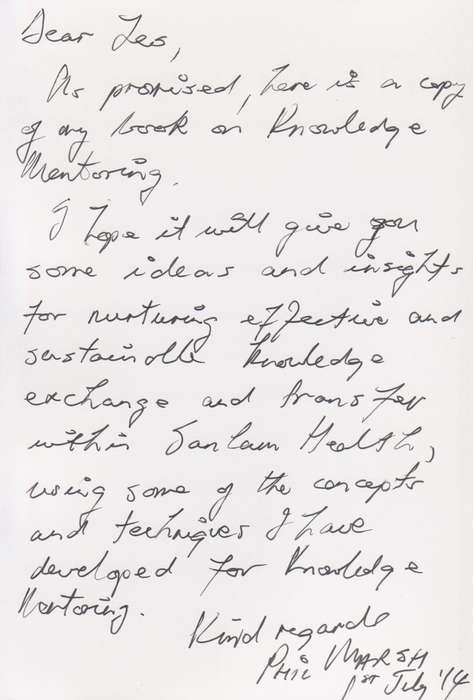 Dear Les,
As promised, here is a copy
of my book on Knowledge
Mentoring.
I hope it will give you
some ideas and insights
for nurturing effective and
sustainable knowledge
exchange and transfer
within Sanlam Health,
using some of the concepts
and techniques I have
developed for Knowledge
Mentoring.
Kind regards
PHIL MARSH
1st July '14